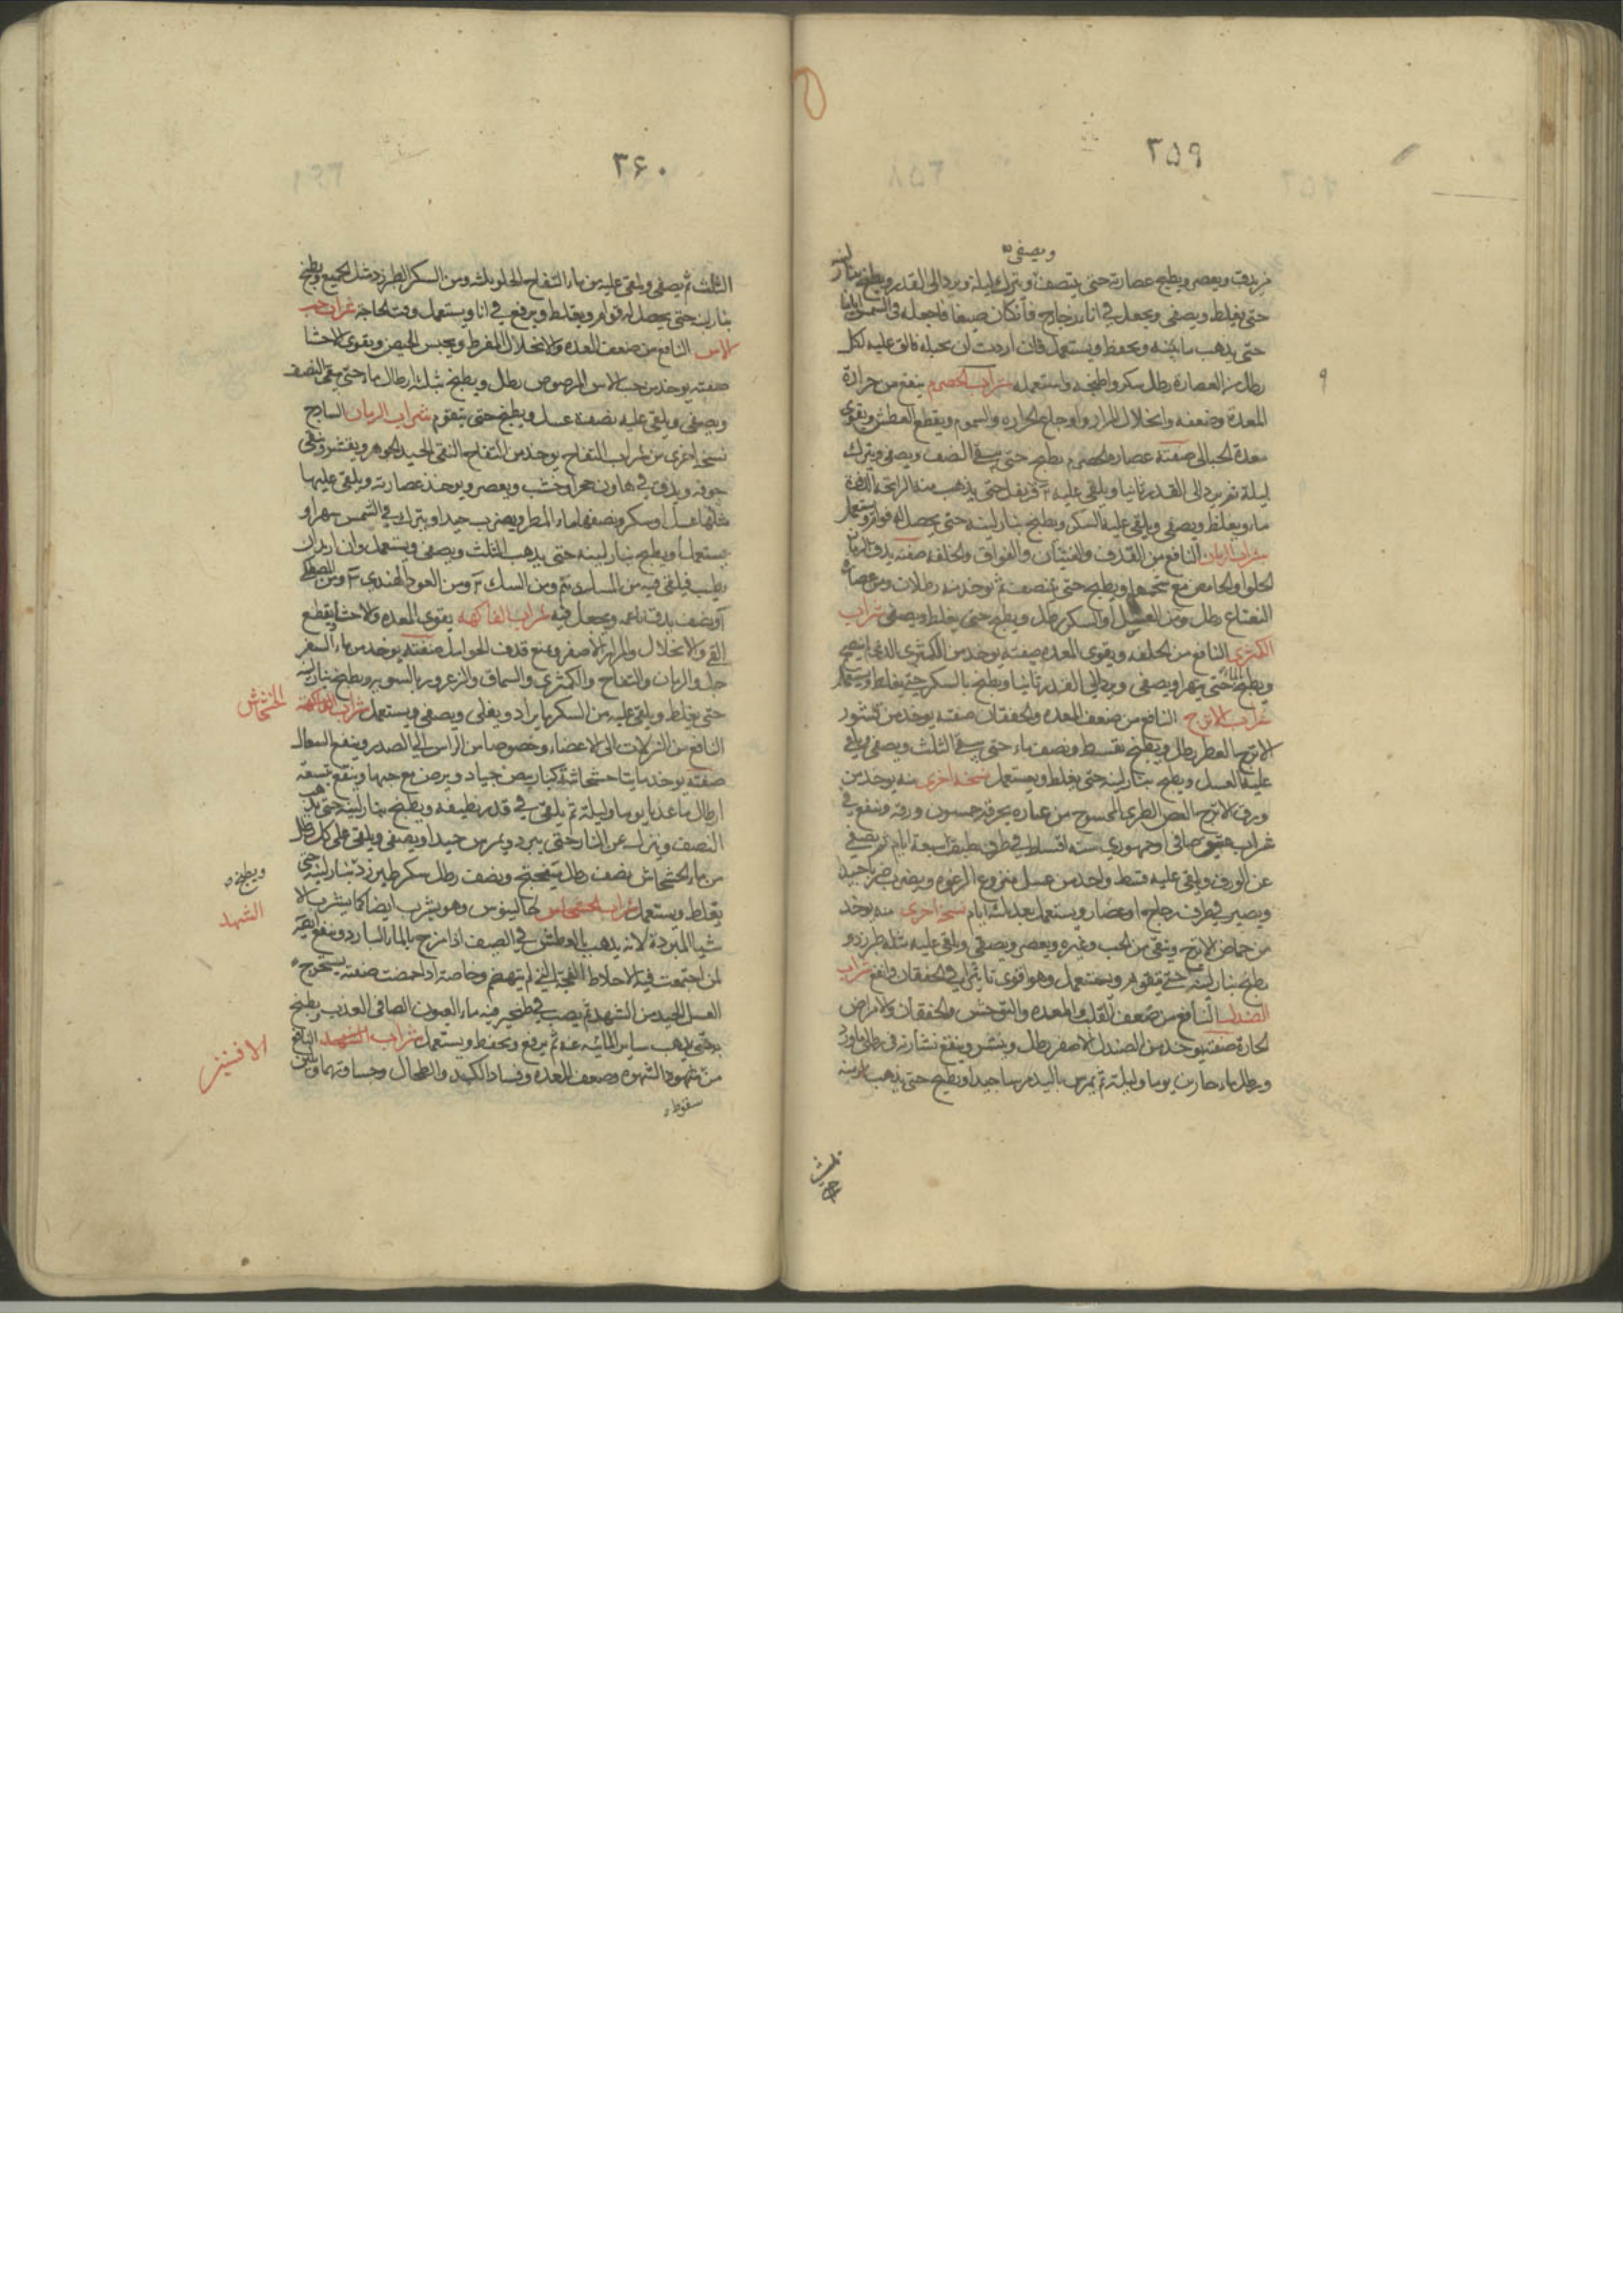 ٣٥٩
ويصفى
ثم يدق ويعصر ويطبخ عصارته حتى ينتصف ويترك ليلة ويرد الى القدر ويطبخ بنار لينه
حتى يغلظ ويصفى ويجعل في اناء زجاج فان كان صيفا فاجعله في الشمس اياما
حتى يذهب مائيته ويحفظ ويستعمل فان اردت ان تحليه فالق عليه لكل
رطل من العصارة رطل سكر واطبخه واستعمله شراب الحصرم ينفع من حرارة
المعدة وضعفه وانحلال المرار واوجاع الحراره والسموم ويقطع العطش ويقوى
معدة الحبالى صفته عصارة الحصرم يطبخ حتى يبقى النصف ويصفى ويترك
ليلة ثم يرد الى القدر ثانيا ويلقى عليه قرنفل حتى يذهب منه الرائحة
ما ويغلظ ويصفى ويلقى عليه السكر ويطبخ بنار لينه حتى يحصل له قوام ويستعمل
شراب الرمان النافع من القذف والغثيان والفواق والخلفه صفته يدق الرمان
الحلو والحامض مع شحمهما ويطبخ حتى ينصف ثم يوخذ منه رطلان ومن عصارة
النعناع رطل ومن العسل او السكر رطل ويطبخ حتى يغلظ ويصفى شراب
الكمثرى النافع من الخلفه ويقوى المعده صفته يوخذ من الكمثرى الذي لم ينضج
ويطبخ حتى يتهرا ويصفى ويرد الى القدر ثانيا ويطبخ بالسكر حتى يغلظ ويستعمل
شراب الاترج النافع من ضعف المعده والخفقان صفته يوخذ من قشور
الاترج العطر رطل ويطبخ بقسط ونصف ماء حتى يبقى الثلث ويصفى ويلقى
عليه العسل ويطبخ بنار لينه حتى يغلظ ويستعمل نسخه اخرى منه يوخذ من
ورق الاترج الغض الطرى الممسوح من غباره بخرقه خمسون ورقه وينقع في
شراب عتيق صافى او جمهورى سته اقساط في ظرف مطبق سبعة ايام ثم يصفى
عن الورق ويلقى عليه قسط واحد من عسل منزوع الرغوه ويضرب ضربا جيدا
ويصير في ظرف زجاج او غضار ويستعمل بعد ثلثة ايام نسخة اخرى منه يوخذ
من حماض الاترج وينقى من الحب وغيره ويعصر ويصفى ويلقى عليه مثله طبرزد و
يطبخ بنار لينه حتى يتقوم ويستعمل وهو اقوى تاثيرا في الخفقان وانفع شراب
الصندل النافع من ضعف القلب والمعده والتوحش والخفقان والامراض
الحارة صفته يوخذ من الصندل الاصفر رطل وينشر وينقع نشارته في رطلى ماورد
ورطل ماء حار يوما وليلة ثم يمرس باليد مرسا جيدا ويطبخ حتى يذهب منه
٣٦٠
الثلث ثم يصفى ويلقى عليه من ماء التفاح الحلو ثلثه ومن السكر الطبرزد مثل الجميع ويطبخ
بنار لينه حتى يحصل له قوام ويغلظ ويرفع في انا ويستعمل وقت الحاجة شراب حب
الاس النافع من ضعف المعده والانحلال المفرط ويحبس الحيض ويقوى الاحشا
صفته يوخذ من حب الاس المرضوض رطل ويطبخ بثلثة ارطال ماء حتى يبقى النصف
ويصفى ويلقى عليه نصفه عسل ويطبخ حتى يتقوم شراب الرمان الساذج
نسخه اخرى من شراب التفاح يوخذ من التفاح النقى الجيد الجوهر ويقشر وينقى
جوفه ويدق في هاون حجر او خشب ويعصر ويوخذ عصارته ويلقى عليها
مثلها عسل او سكر ونصفها ماء المطر ويضرب جيدا ويترك في الشمس شهرا و
يستعمل او يطبخ بنار لينه حتى يذهب الثلث ويصفى ويستعمل وان اريد ان
يطيب فيلقى فيه من المسك ومن السك ومن العود الهندى ومن المصطكى
ونصف يدق ناعما ويجعل فيه شراب الفاكهه يقوى المعده والاحشا ويقطع
القى والانحلال والمرار الاصفر ويمنع قذف الحوامل صفته يوخذ من ماء السفر
جل والرمان والتفاح والكمثرى والسماق والزعرور بالسويه ويطبخ بنار لينه
حتى يغلظ ويلقى عليه من السكر ما يراد ويغلى ويصفى ويستعمل شراب الفواكهة
الخشخاش
النافع من النزلات الى الاعضاء وخصوصا من الراس الى الصدر وينفع السعال
صفته يوخذ مايتا خشخاشة كبار بيض جياد ويرض مع حبها وينقع بتسعة
ارطال ماء عذبا يوما وليلة ثم يلقى في قدر نظيفه ويطبخ بنار لينه حتى يذهب
النصف وينزل عن النار حتى يبرد ويمرس جيدا ويصفى ويلقى على كل رطل
من ماء الخشخاش نصف رطل ميبختج ونصف رطل سكر طبرزد بنار لينه حتى
ويطبخ
يغلظ ويستعمل شراب الخشخاش لجالينوس وهو يشرب ايضا كما يشرب الا
الشهد
شيا المبردة لانه يذهب بالعطش في الصيف اذا مزج بالماء البارد وينفع ايضا
لمن اجتمعت فيه الاخلاط الفجة التي لم ينهضم وخاصة اذا حمضت صنعته يستخرج
العسل الجيد من الشهد ثم يصب في طنجير فيه ماء العيون الصافى العذب ويطبخ
حتى يذهب ساير المائيه عنه ثم يرفع ويحفظ ويستعمل شراب الشهد النافع
الافسنتين
من سقوط الشهوه وضعف المعده وفساد الكبد والطحال وجساوتهما
سقوط